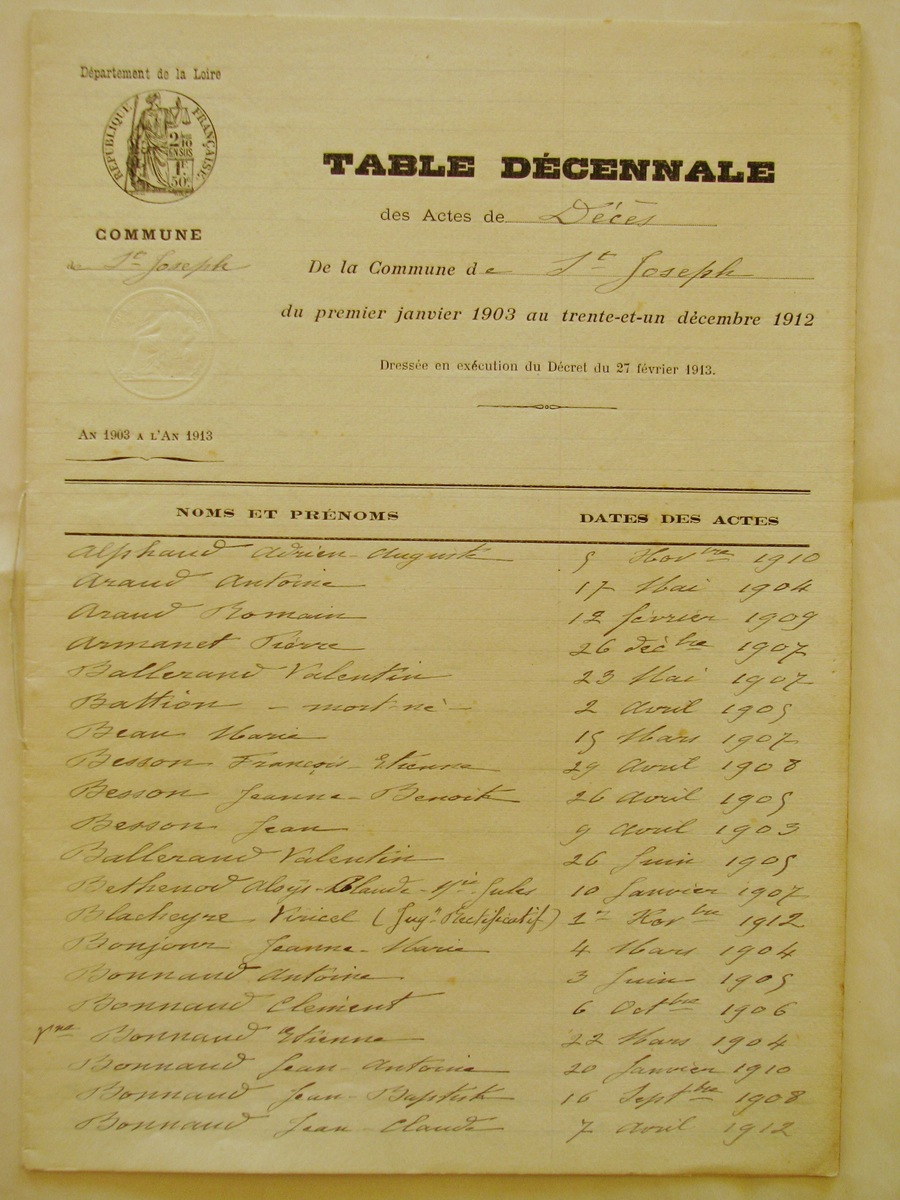 Département de la Loire
RÉPUBLIQUE FRANÇAISE
2/10 EN SUS
1F 50c
COMMUNE
de St Joseph
AN 1903 A L'AN 1913
TABLE DÉCENNALE
des Actes de Décès
De la Commune de St Joseph
du premier janvier 1903 au trente-et-un décembre 1912
Dressée en exécution du Décret du 27 février 1913.
NOMS ET PRÉNOMS DATES DES ACTES
Alphaud Adrien-Auguste 5 Novbre 1910
Araud Antoine 17 Mai 1904
Araud Romain 12 février 1909
Armanet Pierre 26 décbre 1907
Ballerand Valentin 23 Mai 1907
Battion - mort-né - 2 Avril 1905
Beau Marie 15 Mars 1907
Besson François-Etienne 29 Avril 1908
Besson Jeanne-Benoite 26 Avril 1905
Besson Jean 9 Avril 1903
Ballerand Valentin 26 Juin 1905
Bethenod Aloÿs-Claude-Jules 10 Janvier 1907
Blacheyre Viricel (Jugt Rectificatif) 1er Novbre 1912
Bonjour Jeanne-Marie 4 Mars 1904
Bonnaud Antoine 3 Juin 1905
Bonnaud Clément 6 Octbre 1906
Bonnaud Etienne 22 Mars 1904
Bonnaud Jean-Antoine 20 Janvier 1910
Bonnaud Jean-Baptiste 16 Septbre 1908
Bonnaud Jean-Claude 7 Avril 1912